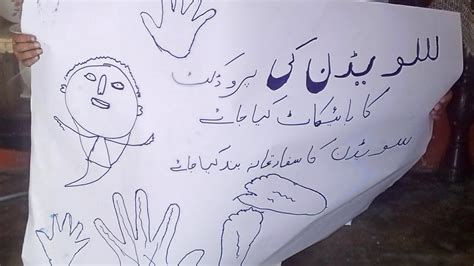 سویڈن کی پروڈکٹ
کا بائیکاٹ کیا جائے
سویڈن کا سفارتخانہ بند کیا جائے